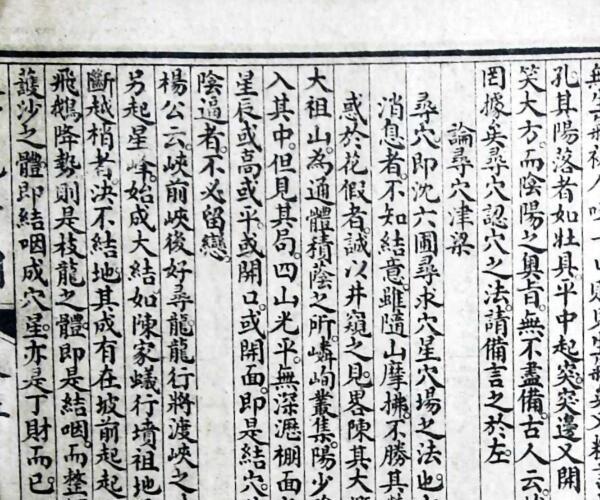 孔其陽落者如壯具平中起突突邊又開
笑大方而陰陽之奧旨無不盡備古人云
罔據兵尋穴認穴之法請備言之於左
論尋穴津梁
尋穴即沈六圃尋求穴星穴場之法也
消息者不知結意雖隨山摩拂不勝其
惑於花假者誠以井窺之見畧陳其大
大祖山為通體積蔭之所嶙峋叢集陽少
入其中但見其局四山光平無深瀝棚面
星辰或高或平或開口或開面即是結穴
陰逼者不必留戀
楊公云峽前峽後好尋龍龍行將渡峽之
另起星峰始成大結如陳家蟻行墳祖地
斷越梢者決不結地其成有在坡前起起
飛鵝降勢則是枝龍之體即是結咽而整
護沙之體即結咽成穴星亦是丁財而已